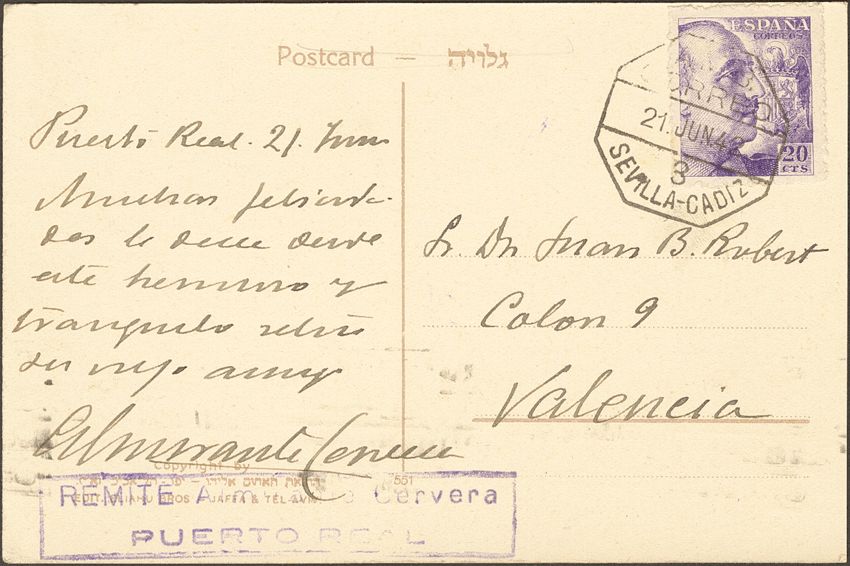 Postcard – גלויה
ESPAÑA
CORREOS
20
CTS
CORREO
21.JUN.42
3
SEVILLA-CADIZ
Puerto Real. 21. Junio
Muchas felicida-
des le desea desde
este hermoso y
tranquilo retiro
su viejo amigo
Almirante Cervera
Sr. Dn. Juan B. Robert
Colon 9
Valencia
Copyright by
EDIT. ELIAHU BROS JAFFA & TEL-AVIV
551
REMITE Cervera
PUERTO REAL